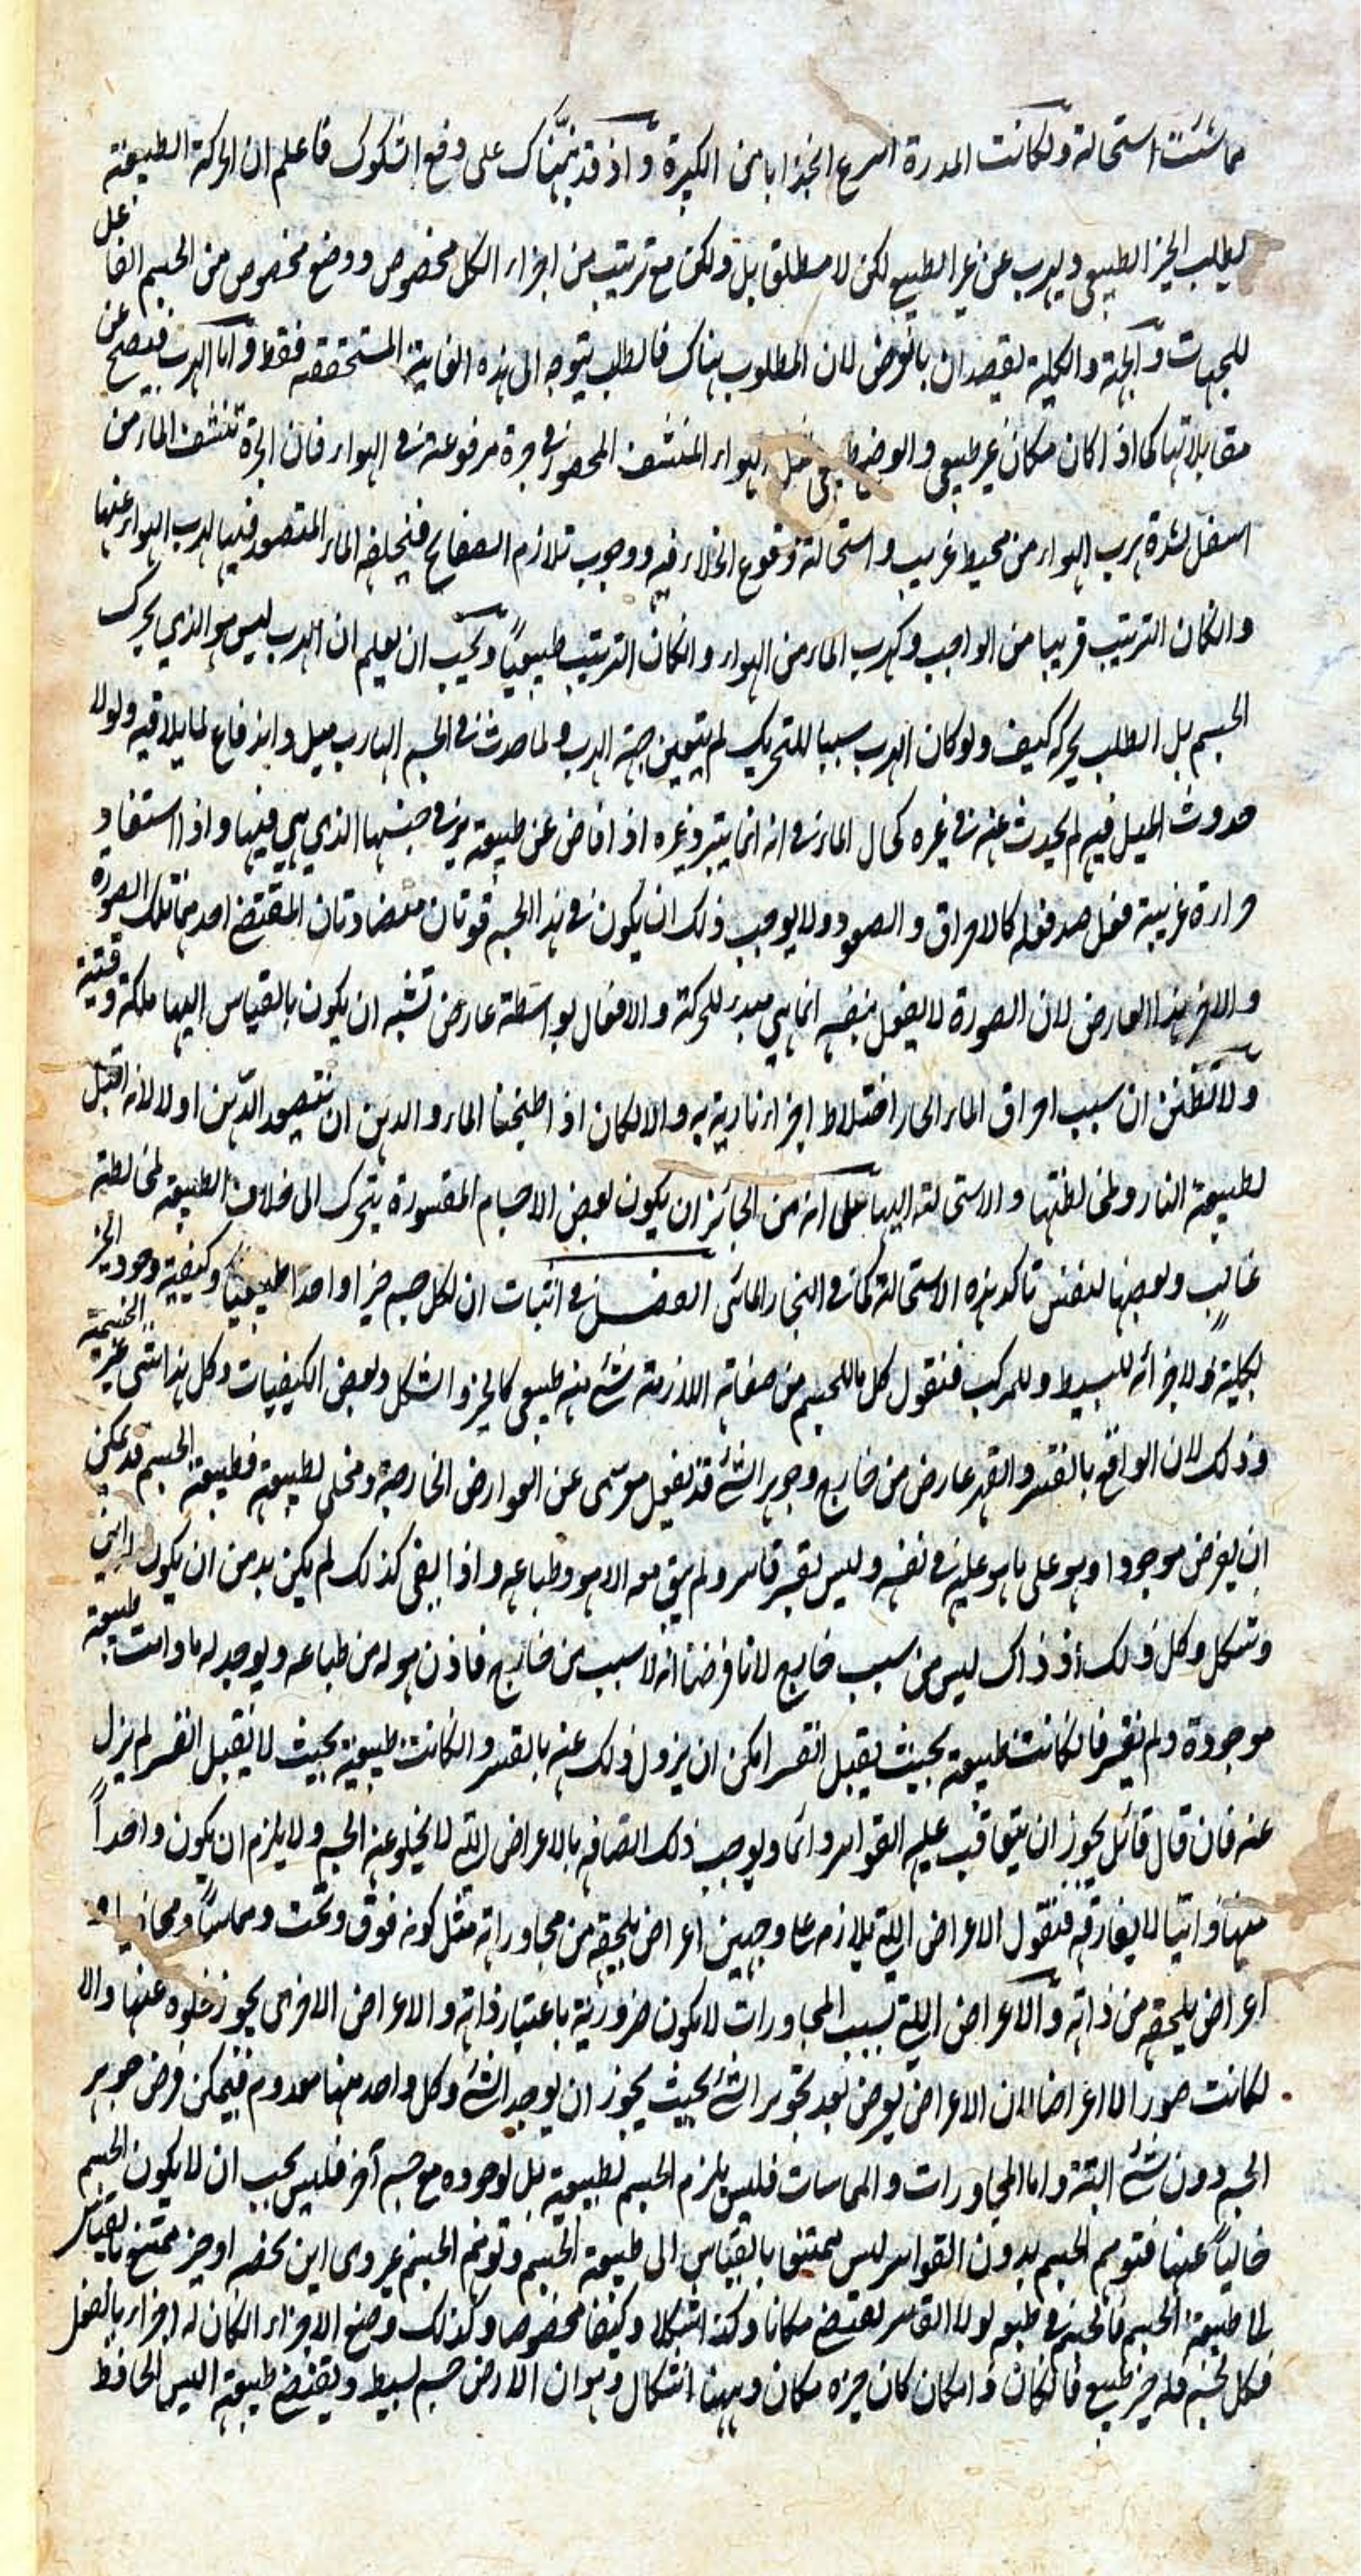 مماسّة استحالة ولكانت المدرة اسرع انجذابا من الكبيرة واذ قد نبهناك على دفع الشكوك فاعلم ان الحركة الطبيعية
لطلب الحيز الطبيعي ويهرب عن غير الطبيعي لكن لا مطلق بل ولكن مع ترتيب من اجزاء الكل مخصوص ووضع مخصوص من الجسم الفاعل
للجهات والجهة والكلية يقصدان بالعرض لان المطلوب هناك فالطلب يتوجه الى هذه الغاية المستحققة فقط واما الهرب فيصح عن
مقابلاتها كما اذا كان مكان غير طبيعي والوضع طبيعي مثل الهواء المنتشف المحصور في جرة مرفوعة في الهواء فان الجرة تنتشف الماء من
اسفل لشدة هرب الهواء من محيط غريب واستحالة وقوع الخلاء فيه ووجوب تلازم الصفائح فيخلفه الماء المتصعد فيها لهرب الهواء عنها
وان كان الترتيب قريبا من الواجب وكهرب الماء من الهواء وان كان الترتيب طبيعيا ويجب ان يعلم ان الهرب ليس هو الذي يحرك
الجسم بل الطلب يحركه كيف ولو كان الهرب سببا للتحريك لم يتعين جهة الهرب ولما حدث في الجسم الهارب ميل واندفاع لما يلاقيه ولولا
حدوث الميل فيه لم يحدث عنه في غيره كحال الماء في انه انما يتبرد غيره اذ افاض عن طبيعته برد في جنبها الذي هي فيها واذا استفاد
حرارة غريبة فعل ضد فعله كالاحراق والصعود ولا يوجب ذلك ان يكون في هذا الجسم قوتان متضادتان المقتضي احدهما تلك الصورة
والاخر هذا العارض لان الصورة لا يفعل بنفسه انما هي مبدء للحركة والافعال بواسطة عارض تشبه ان يكون بالقياس اليها ملكة وقنية
ولا تظنن ان سبب احراق الماء الحار اختلاط اجزاء نارية به والا لكان اذا طبخنا الماء والدهن ان يتصعد الدهن اولا لانه اقبل
لطبيعة النار ومخالطتها والاستحالة اليها على انه من الجائز ان يكون بعض الاجسام المقسورة يتحرك الى خلاف الطبيعة لمخالطة
غالب وبعضها لنفس تاكد هذه الاستحالة كما في البخار المائي الفصل في اثبات ان لكل جسم حيزا واحدا طبيعيا وكيفية وجود الحيز
لكلية ولاجزائه للبسيط وللمركب فنقول كل ما للجسم من صفاته اللازمة شيء منه طبيعي كالحيز والشكل وبعض الكيفيات وكل هذا شيء غير الجسمية
وذلك لان الواقع بالقسر والقهر عارض من خارج وجوهر الشيء قد يفعل موسى عن العوارض الخارجة ومخلى لطبيعته فطبيعة الجسم قد يمكن
ان يفرض موجودا وهو على ما هو عليه في نفسه وليس يقسره قاسر ولم يبق معه الا هو وطباعه واذا بقي كذلك لم يكن بد من ان يكون له اين
وشكل وكل ذلك اذ ذاك ليس من سبب خارج لانا فرضنا انه لا سبب من خارج فاذن هو له من طباعه ويوجد له ما دامت طبيعة
موجودة ولم يقسر فان كانت طبيعة بحيث يقبل القسر امكن ان يزول ذلك عنه بالقسر وان كانت طبيعية بحيث لا يقبل القسر لم يزل
عنه فان قال قائل يجوز ان يتعاقب عليه القواسر دائما ويوجب ذلك اتصافه بالاعراض التي لا يخلو عنه الجسم ولا يلزم ان يكون واحداً
منها ذاتيا لا يفارقه فنقول الاعراض التي يلازمه على وجهين اعراض يلحقه من مجاوراته مثل كونه فوق وتحت ومماسا ومحاذيا و
اعراض يلحقه من ذاته والاعراض التي بسبب المجاورات لا يكون ضرورية باعتبار ذاته والاعراض الاخرى يجوز خلوه عنها والا
لكانت صورا لا اعراضا لان الاعراض يعرض بعد تجوهر الشيء بحيث يجوز ان يوجد الشيء وكل واحد منها معدوم فيمكن فرض جوهر
الجسم دون شيء البتة واما المجاورات والمماسات فليس يلزم الجسم لطبيعته بل لوجوده مع جسم آخر فليس يجب ان لا يكون الجسم
خاليا عنها فتوهم الجسم بدون القواسر ليس يمتنع بالقياس الى طبيعة الجسم وتوهم الجسم غير ذي اين يخصه او حيز ممتنع بالقياس
الى طبيعة الجسم فالجسم في طبعه لولا القاسر يقتضي مكانا وكذا شكلا وكيفا مخصوصا وكذلك وضع الاجزاء ان كان له اجزاء بالفعل
فكل جسم فله حيز طبيعي فان كان ذا مكان كان حيزه مكان وههنا اشكال وهو ان الارض جسم بسيط ويقتضي طبيعته اليبس الحافظ